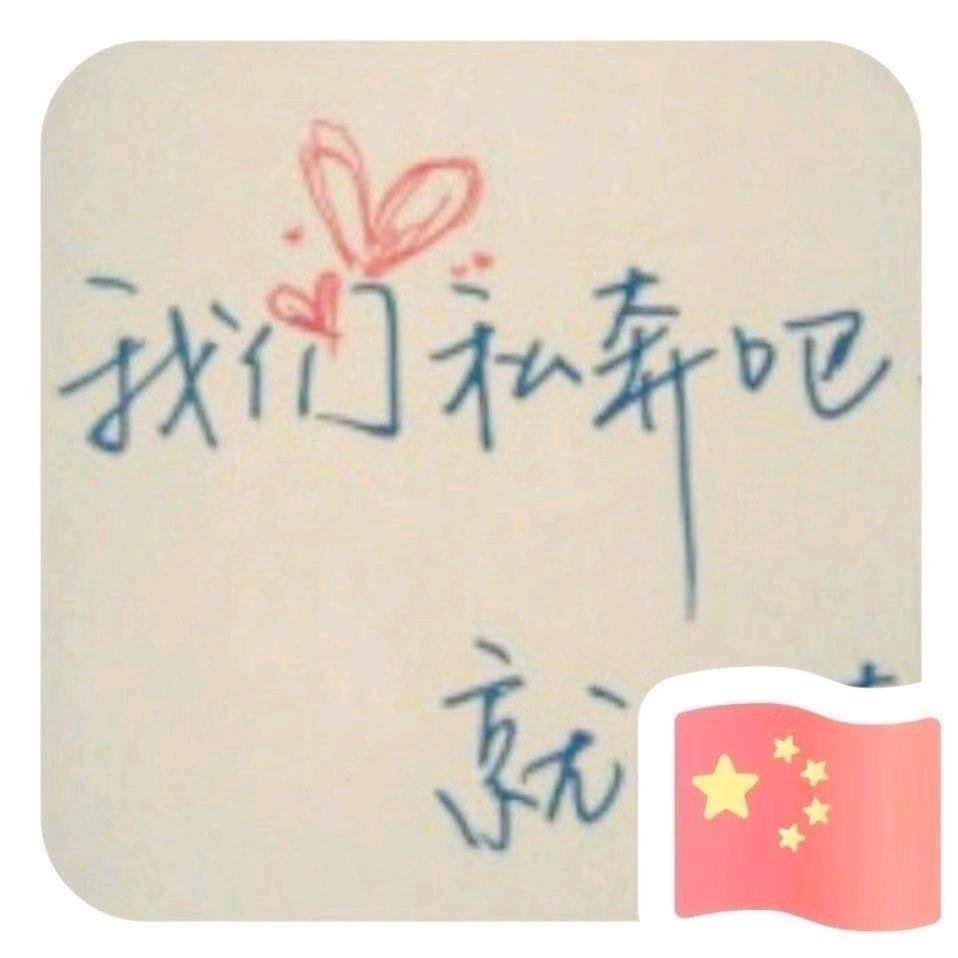 我们私奔吧
就